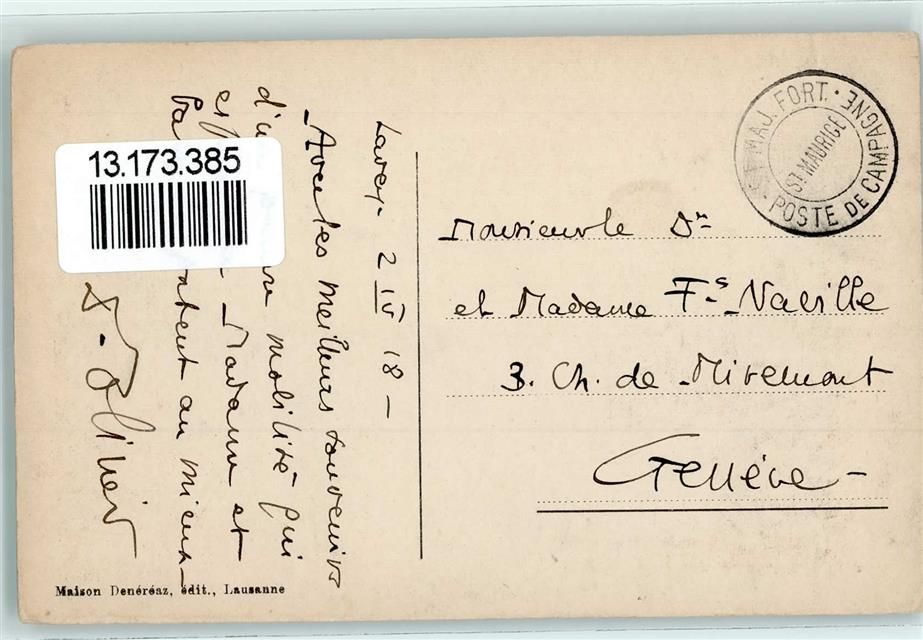 ST MAJ. FORT. ·
ST MAURICE
POSTE DE CAMPAGNE
13.173.385
Lavey - 2 IV 18 -
Avec les meilleurs souvenirs
mobilisé qui
Madame et
au mieux -
Monsieur le Dr
et Madame Fs Naville
3. Ch. de Miremont
Genève -
Maison Denéréaz, édit., Lausanne